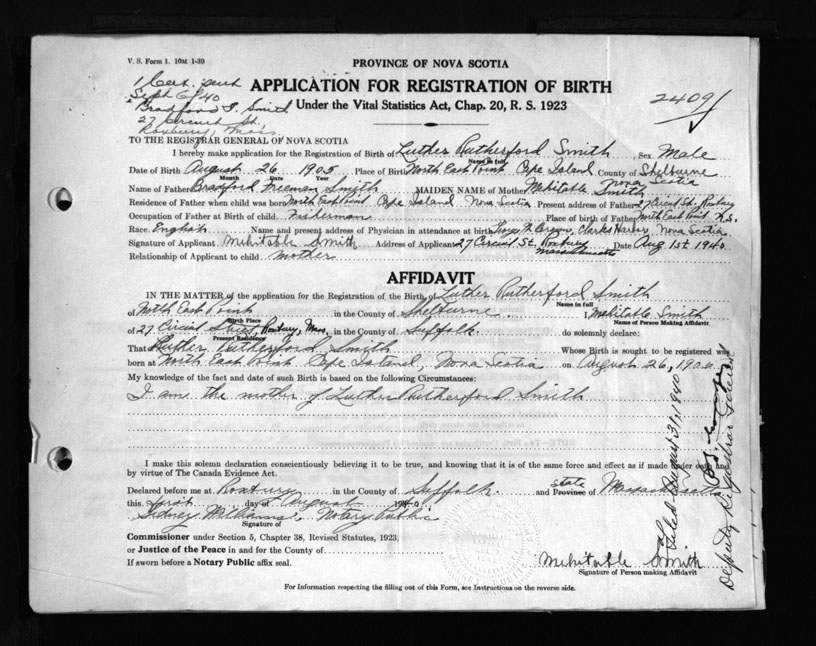 V. S. Form 1. 10M 1-39
PROVINCE OF NOVA SCOTIA
1 Cert. sent
Sept 6/40
Bradford F. Smith
27 Circuit St.,
Roxbury, Mass.
APPLICATION FOR REGISTRATION OF BIRTH
Under the Vital Statistics Act, Chap. 20, R. S. 1923
2409
TO THE REGISTRAR GENERAL OF NOVA SCOTIA
I hereby make application for the Registration of Birth of Luther Rutherford Smith Sex Male
Name in full
Date of Birth August 26 1905 Place of Birth North East Point Cape Island County of Shelburne
Month Date Year
Nova Scotia
Name of Father Bradford Freeman Smith MAIDEN NAME of Mother Mehitable Smith
Residence of Father when child was born North East Point Cape Island Nova Scotia Present address of Father 27 Circuit St. Roxbury
Occupation of Father at Birth of child Fisherman Place of birth of Father North East Point N.S.
Race English Name and present address of Physician in attendance at birth Clarks Harbor, Nova Scotia
Signature of Applicant Mehitable Smith Address of Applicant 27 Circuit St. Roxbury Date Aug 1st 1940
Massachusetts
Relationship of Applicant to child mother
AFFIDAVIT
IN THE MATTER of the application for the Registration of the Birth of Luther Rutherford Smith
Name in full
of North East Point in the County of Shelburne I, Mehitable Smith
Birth Place Name of Person Making Affidavit
of 27 Circuit Street, Roxbury, Mass, in the County of Suffolk do solemnly declare:
Present Residence
That Luther Rutherford Smith Whose Birth is sought to be registered was
born at North East Point Cape Island, Nova Scotia on August 26, 1905
My knowledge of the fact and date of such Birth is based on the following Circumstances:
I am the mother of Luther Rutherford Smith
I make this solemn declaration conscientiously believing it to be true, and knowing that it is of the same force and effect as if made under oath and
by virtue of The Canada Evidence Act.
Declared before me at Roxbury in the County of Suffolk and state Province of Massachusetts
this first day of August 1940.
Sidney Notary Public
Signature of
Commissioner under Section 5, Chapter 38, Revised Statutes, 1923,
or Justice of the Peace in and for the County of
If sworn before a Notary Public affix seal.
Mehitable Smith
Signature of Person making Affidavit
For Information respecting the filling out of this Form, see Instructions on the reverse side.
Filed August 31, 1940
Deputy Registrar General